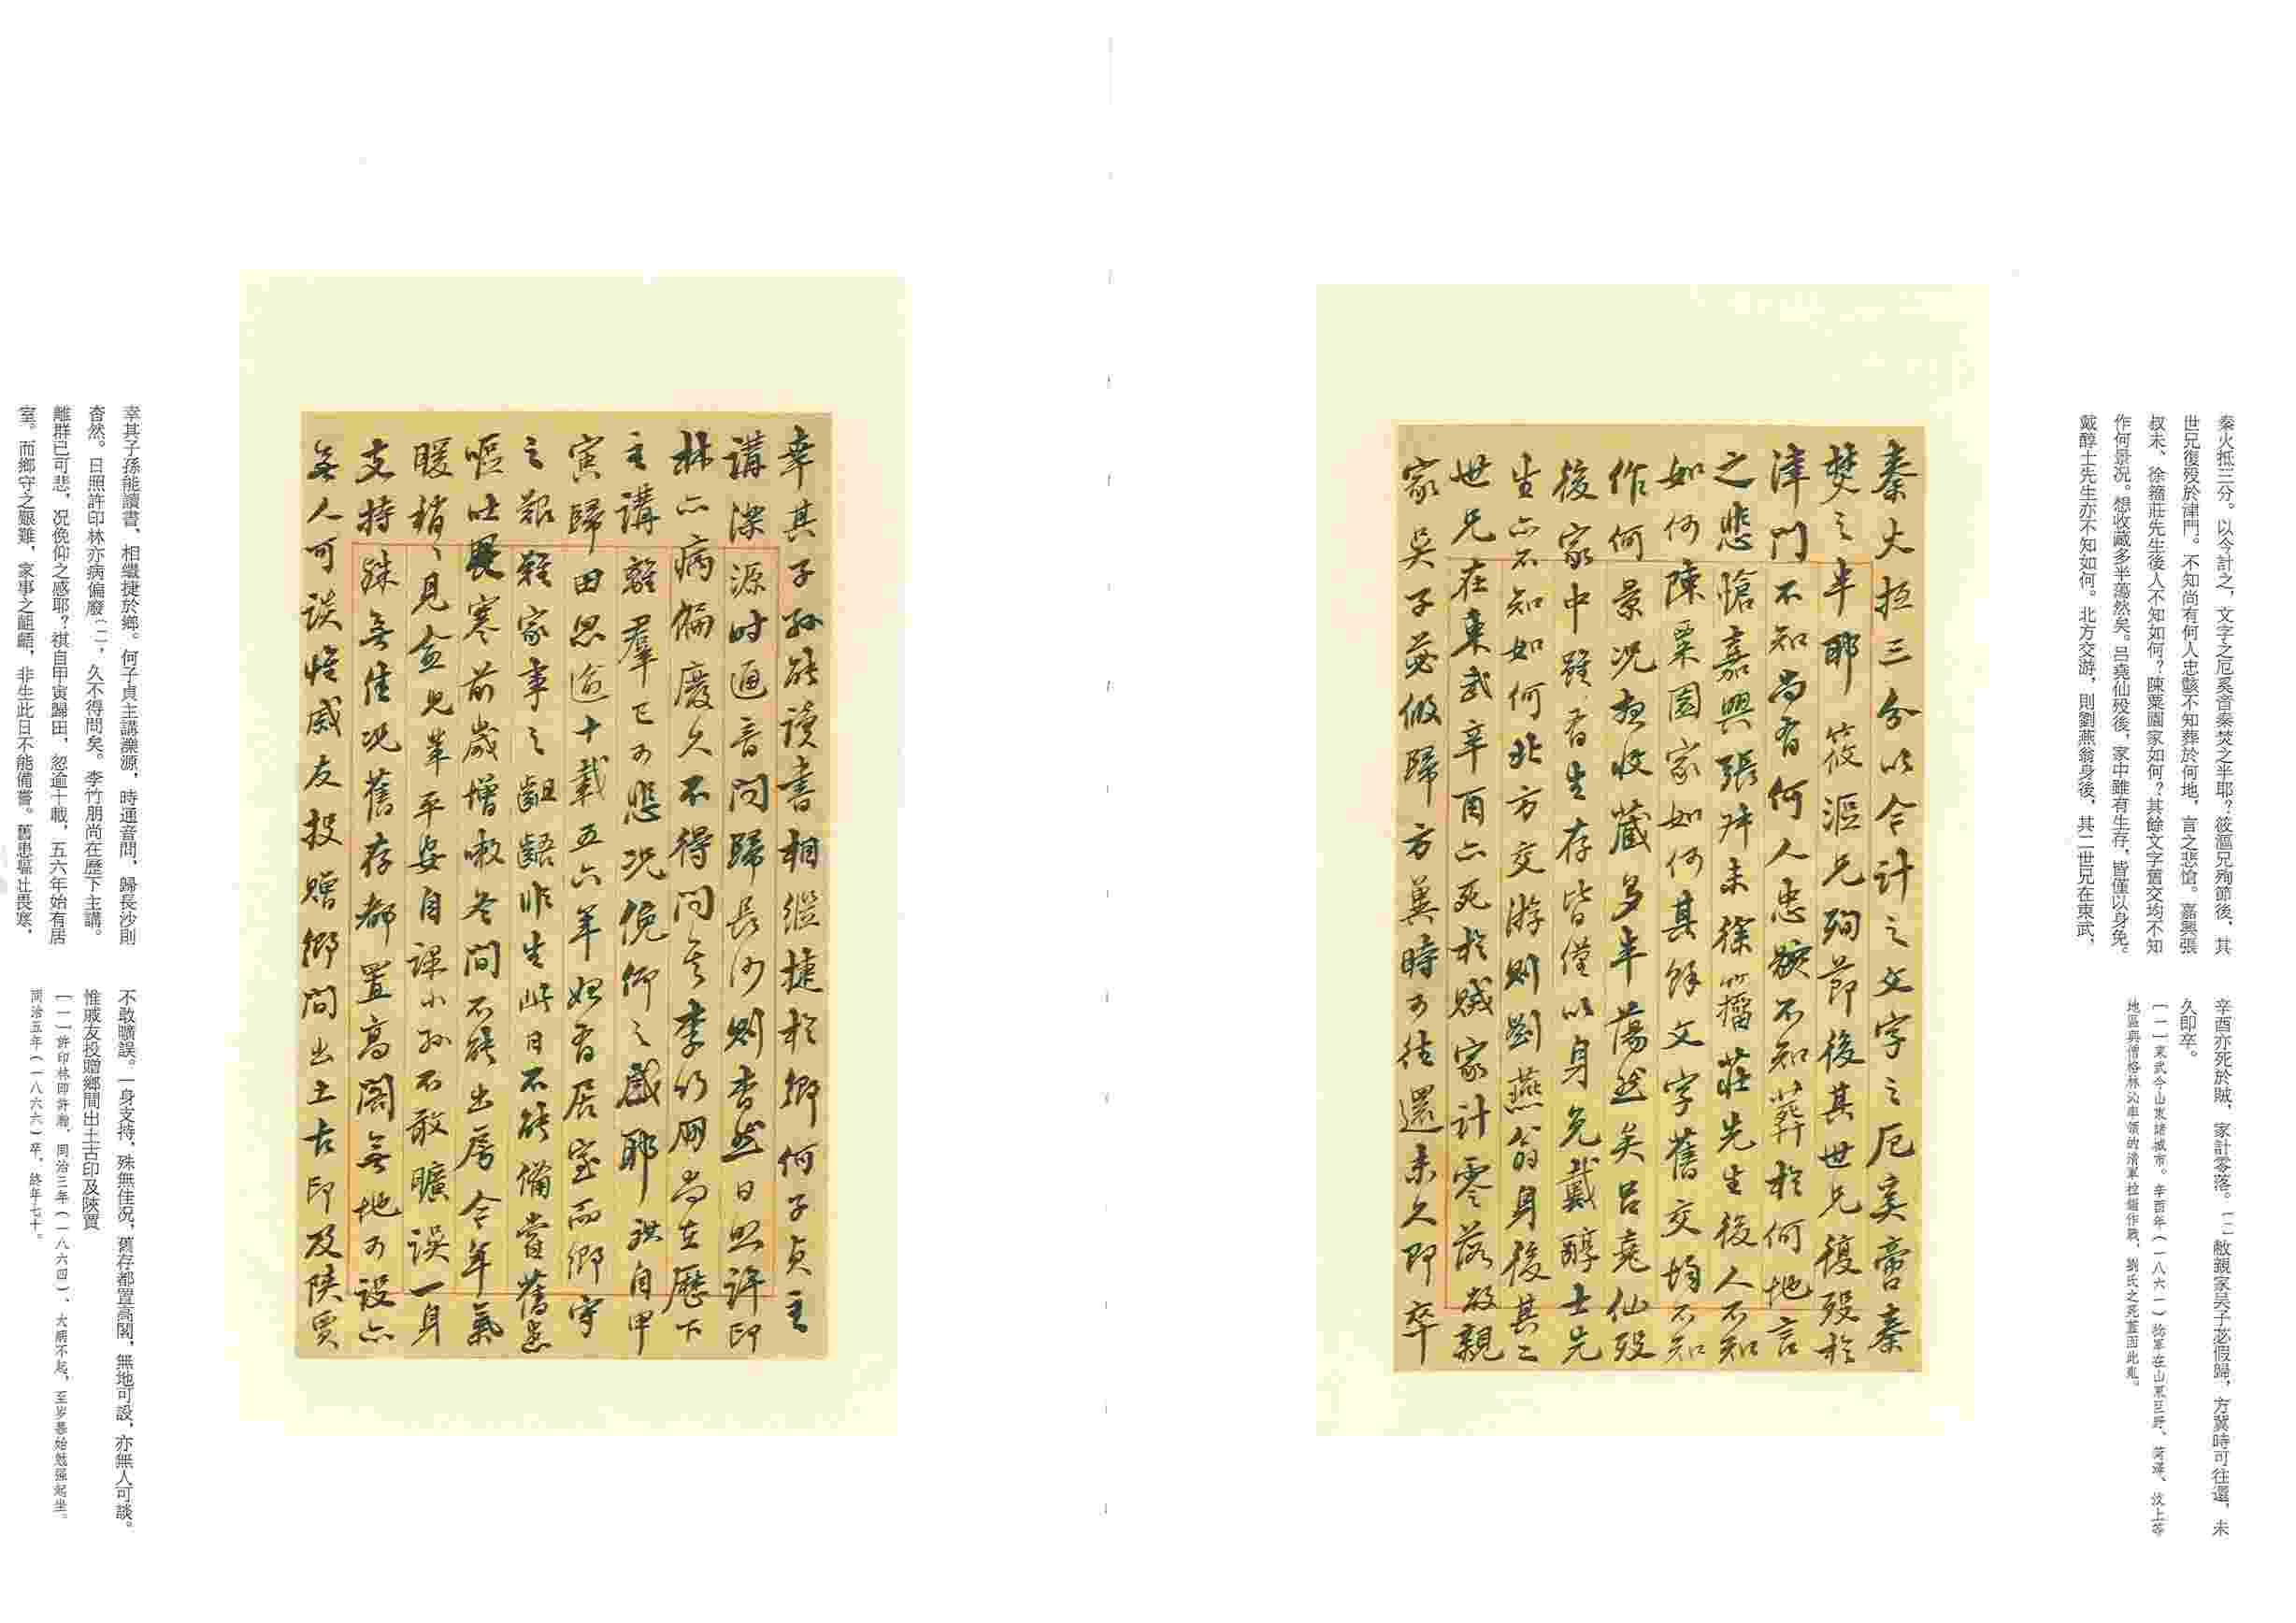 秦火拒三分。以今計之，文字之厄奚啻秦焚之半耶？筱漚兄殉節後，其
世兄復殁於津門。不知尚有何人忠骸不知葬於何地，言之悲愴。嘉興張
叔未、徐籀莊先生後人不知如何？陳粟園家如何？其餘文字舊交均不知
作何景况。想收藏多半蕩然矣。吕堯仙殁後，家中雖有生存，皆僅以身免。
戴醇士先生亦不知如何。北方交游，則劉燕翁身後，其二世兄在東武，
辛酉亦死於賊，家計零落。〔一〕敝親家吴子苾假歸，方冀時可往還，未
久即卒。
〔一〕東武今山東諸城市。辛酉年（一八六一）捻軍在山東巨野、菏澤、汶上等
地區與僧格林沁率領的清軍拉鋸作戰，劉氏之死蓋因此亂。
秦火拒三分以今計之文字之厄奚啻秦
焚之半耶筱漚兄殉節後其世兄復殁於
津門不知尚有何人忠骸不知葬於何地言
之悲愴嘉興張叔未徐籀莊先生後人不知
如何陳粟園家如何其餘文字舊交均不知
作何景况想收藏多半蕩然矣吕堯仙殁
後家中雖有生存皆僅以身免戴醇士先
生亦不知如何北方交游則劉燕翁身後其二
世兄在東武辛酉亦死於賊家計零落敝親
家吴子苾假歸方冀時可往還未久即卒
幸其子孫能讀書相繼捷於鄉何子貞主
講濼源時通音問歸長沙則杳然日照許印
林亦病偏廢久不得問矣李竹朋尚在歷下
主講離羣已可悲况俛仰之感耶祺自甲
寅歸田忽逾十載五六年始有居室而鄉守
之艱難家事之齟齬非生此日不能備嘗舊患
嘔吐畏寒前歲增嗽冬間不能出房今年氣
暖稍稍見愈兄輩平安自課小孫不敢曠誤一身
支持殊無佳况舊存都置高閣無地可設亦
無人可談惟戚友投贈鄉間出土古印及陝賈
幸其子孫能讀書，相繼捷於鄉。何子貞主講濼源，時通音問，歸長沙則
杳然。日照許印林亦病偏廢〔一〕，久不得問矣。李竹朋尚在歷下主講。
離群已可悲，况俛仰之感耶？祺自甲寅歸田，忽逾十載，五六年始有居
室。而鄉守之艱難，家事之齟齬，非生此日不能備嘗。舊患嘔吐畏寒，
不敢曠誤。一身支持，殊無佳况，舊存都置高閣，無地可設，亦無人可談。
惟戚友投贈鄉間出土古印及陝賈
〔一〕許印林即許瀚，同治三年（一八六四），大病不起，至岁暮始勉强起坐。
同治五年（一八六六）卒，終年七十。